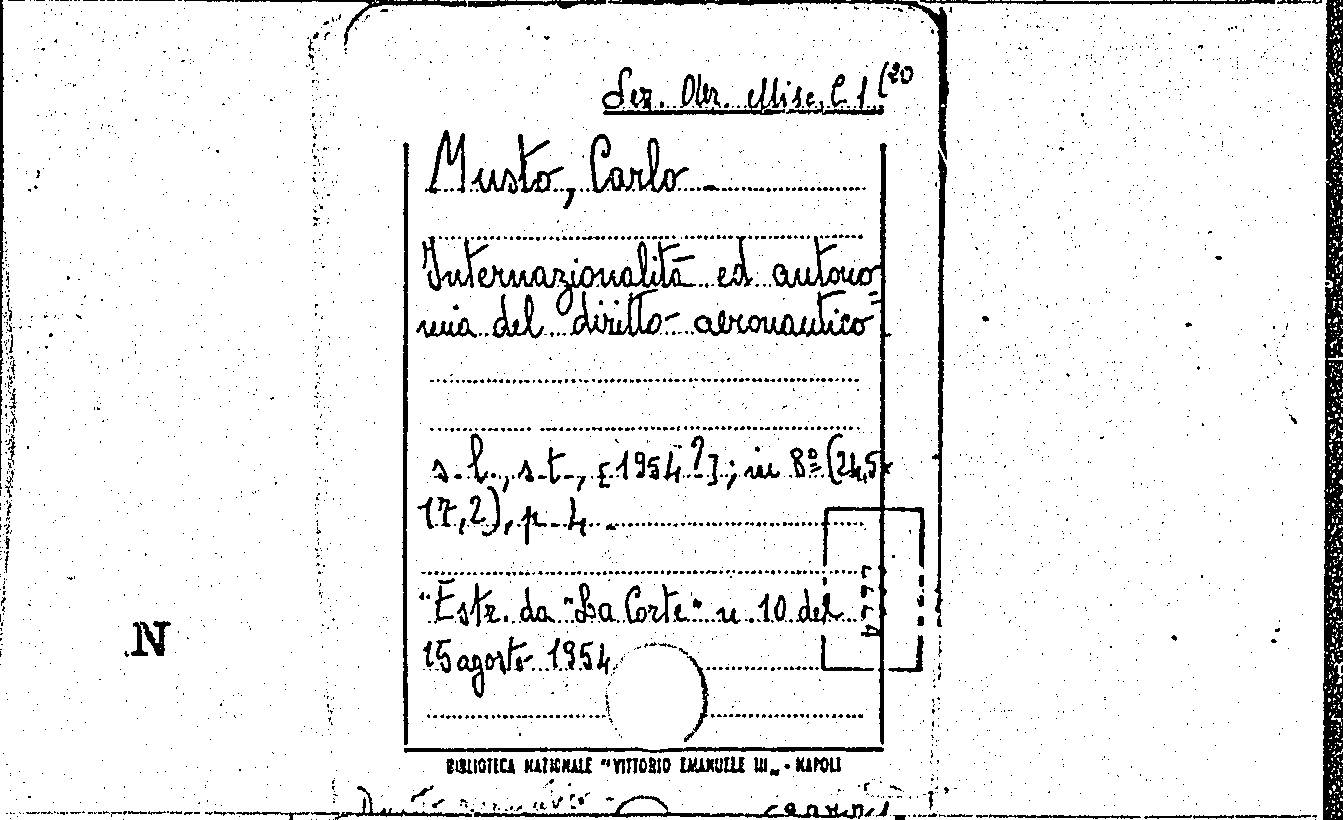 Sez. Obr. Misc. C 1 (20
Musto, Carlo.
Internazionalità ed autono=
mia del diritto aeronautico
s.l., s.t., [1954?]; in 8º (24,5x
17,2), p. 4.
"Estr. da "La Corte" n. 10 del
15 agosto 1954
N
BIBLIOTECA NAZIONALE "VITTORIO EMANUELE III" - NAPOLI